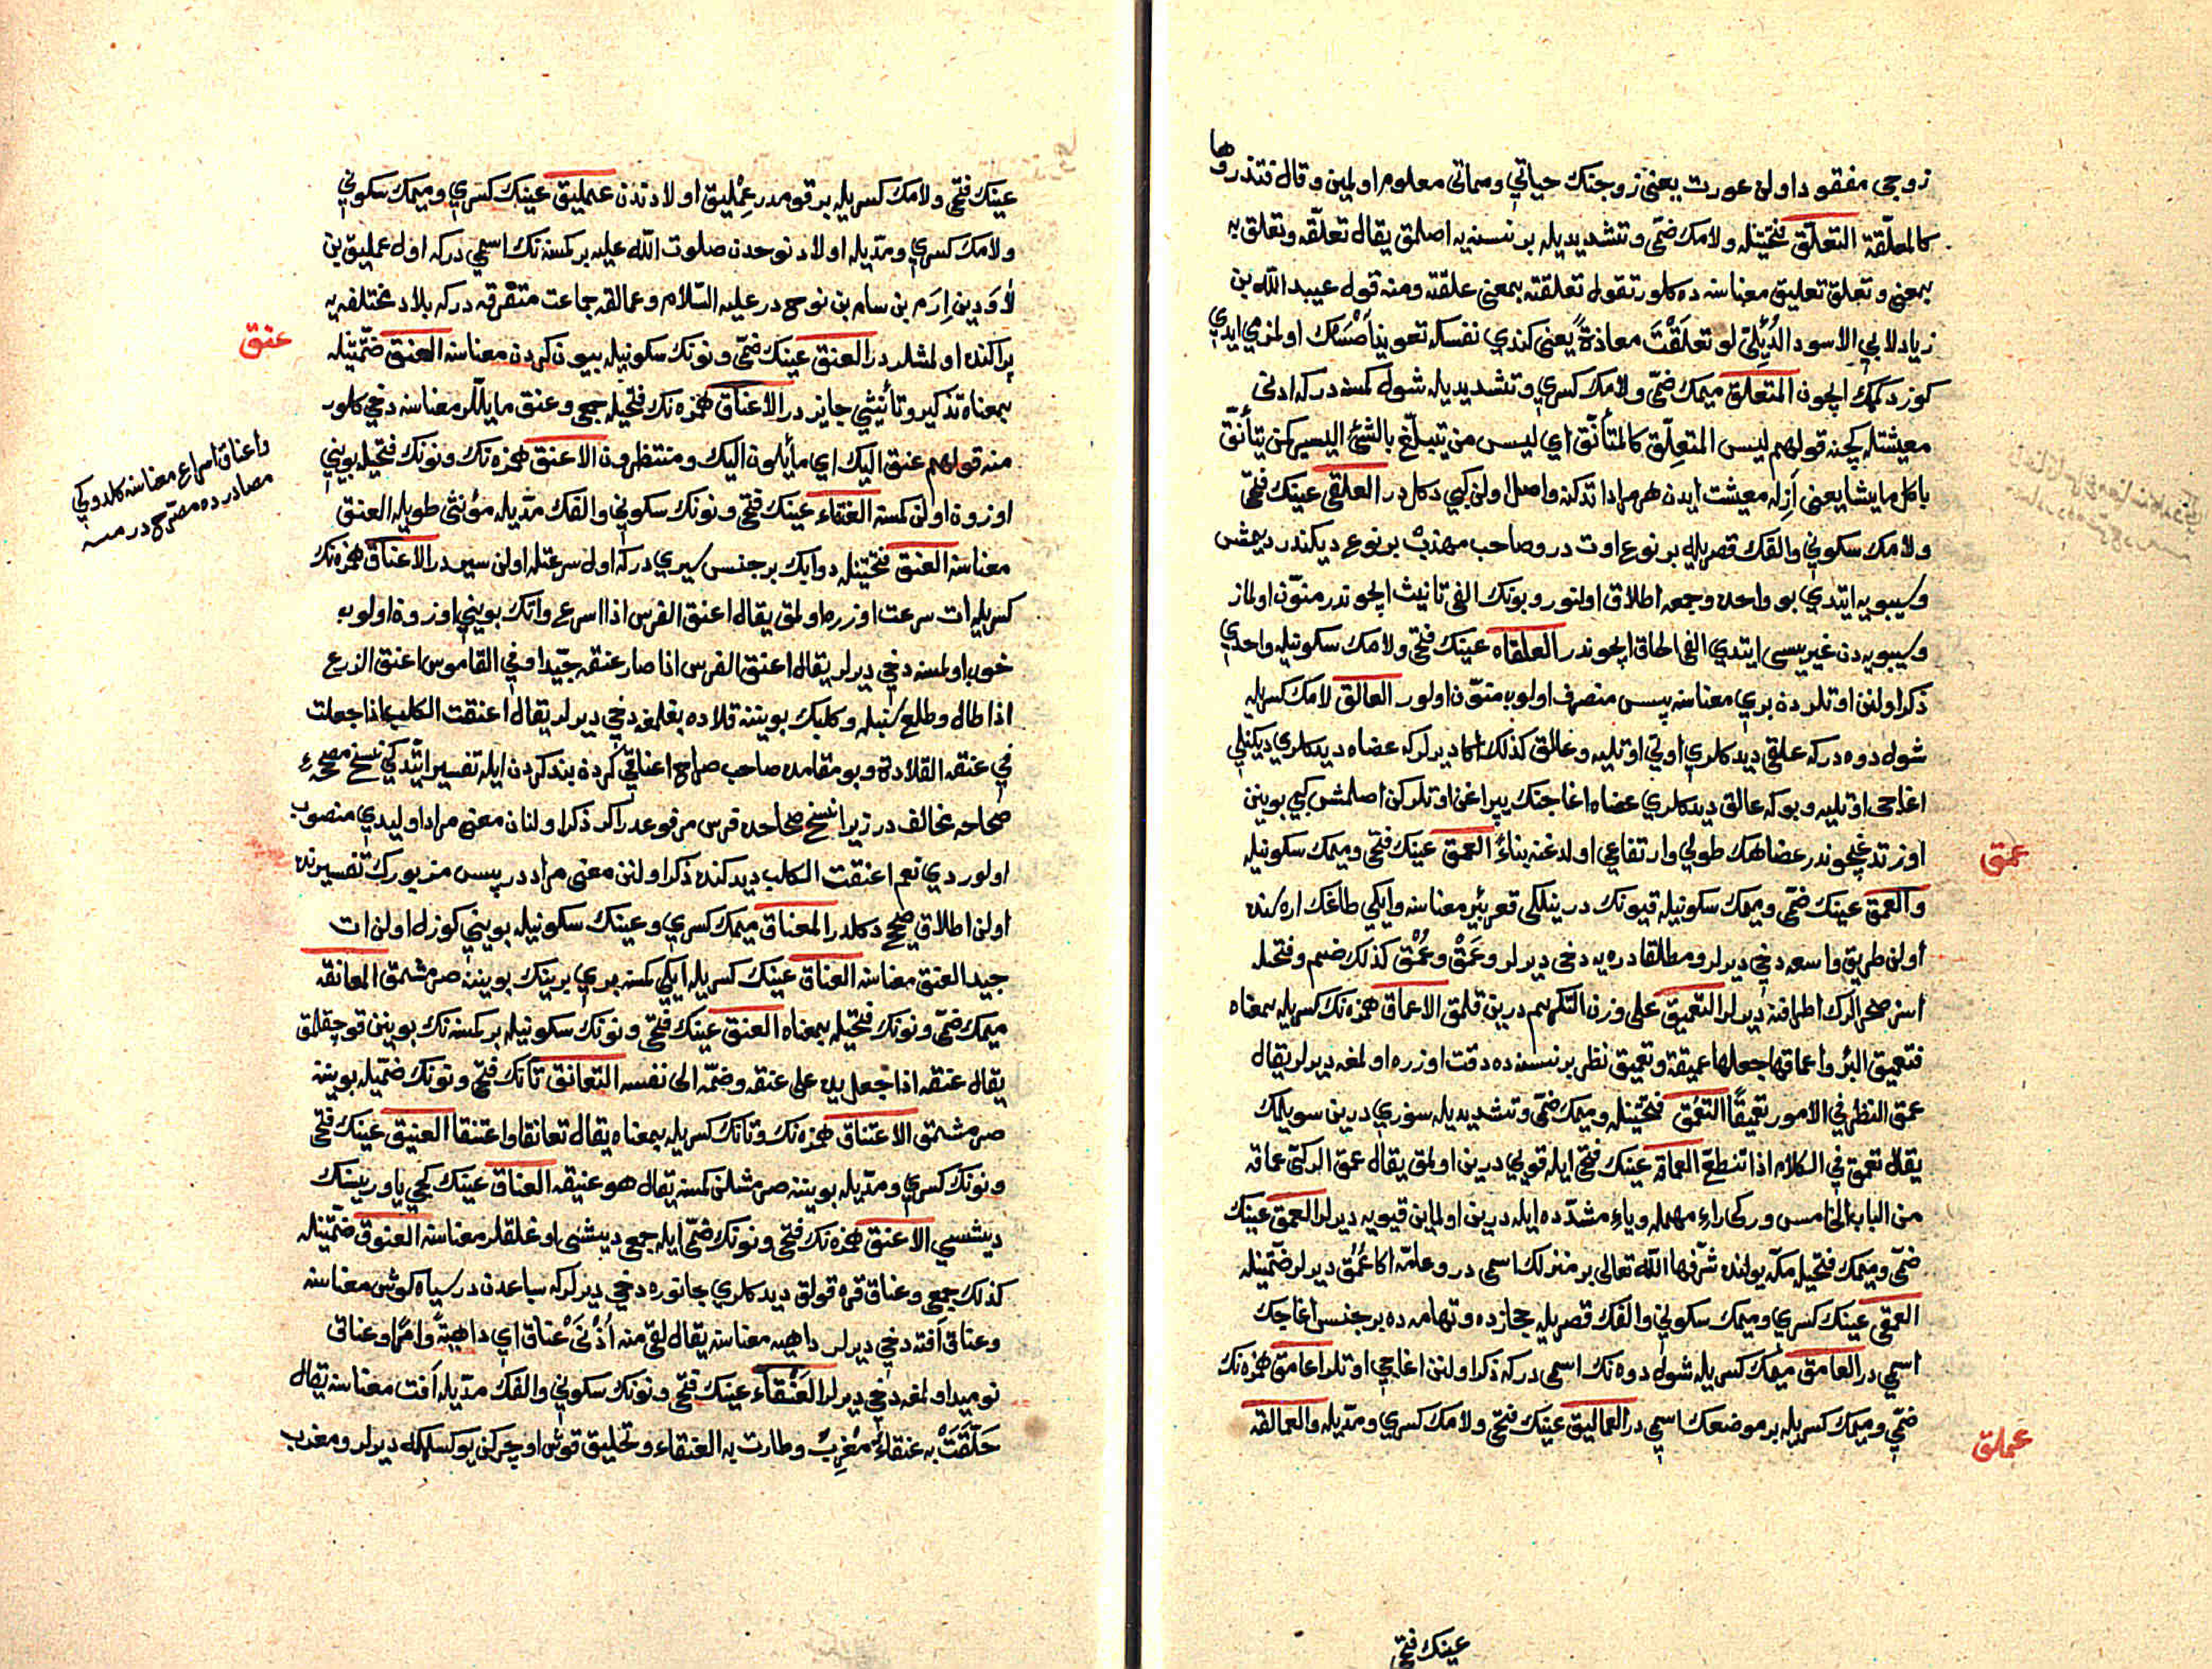 زوجی مفقود اولن عورت یعنی زوجنك حیاتی ومماتی معلوم اولمین وقال فتذروها
كالمعلّقة التعلّق فتحتیله ولامك ضمّی وتشدیدیله بر نسنیه اصلمق یقال تعلّقه وتعلق به
بمعنی وتعلق تعلیق معناسنه ده كلور تقول تعلقته بمعنی علقته ومنه قول عبید الله بن
زیاد لابی الاسود الدُّئِلی لو تعلّقْتَ معاذة یعنی كندی نفسكه تعویذ اصسك اولمزمی ایدی
كوز دكمك ایچون المتعلق میمك ضمّی ولامك كسری وتشدیدیله شول كمسه دركه ادنی
معیشتله كچنه قولهم لیس المتعلّق كالمتأنّق ای لیس من یتبلّغ بالشئ الیسیر كمن یتأنّق
یأكل ما یشا یعنی ازله معیشت ایدن هر مراد اتدكنه واصل اولن كبی دكلدر العلقی عینك فتحی
ولامك سكونی والفك قصریله بر نوع اوت در وصاحب مهذب بر نوع دیكندر دیمش
وسیبویه ایتدی بو واحده وجمعه اطلاق اولنور وبونك الفی تانیث ایچوندر منوّن اولماز
وسیبویه دن غیریسی ایتدی الفی الحاق ایچوندر العلقاه عینك فتحی ولامك سكونیله واحدی
ذكر اولنن اوتلردن بری معناسنه پس منصرف اولوب منوّن اولور العالق لامك كسریله
شول دوه دركه علقی دیدكلری اوتی اوتلیه وعالق كذلك اكا دیرلركه عضاه دیدكلری دیكنلی
اغاجی اوتلیه وبوكه عالق دیدكلری عضاه اغاجنك یپراغن اوتلركن اصلمش كبی بوینن
اوزتدغیچوندر عضاهك طولی وارتفاعی اولدغنه بناءً العمق عینك فتحی ومیمك سكونیله
والعمق عینك ضمّی ومیمك سكونیله قیونك درینلكی قعر بئر معناسنه وایكی طاغك ارهسنده
اولن طریق واسعه دخی دیرلر ومطلقا دره یه دخی دیرلر وعَمْق وعُمْق كذلك ضم وفتحله
اسز صحرالرك اطرافنه دیرلر التعمیق علی وزن التكریم درین قلمق الاعماق همزه نك كسریله بمعناه
فتعمیق البئر واعماقها جعلها عمیقة وتعمیق نظر بر نسنه ده دقت اوزره اولمغه دیرلر یقال
عمق النظر فی الامور تعمیقًا التعمّق فتحتیله ومیمك ضمّی وتشدیدیله سوزی درین سویلمك
یقال تعمق فی الكلام اذا تنطع العماقه عینك فتحی ایله قویی درین اولمق یقال عمق الركیّ عماقه
من الباب الخامس وركی راء مهمله ویاء مشدّده ایله درین اولمیان قیویه دیرلر العمق عینك
ضمّی ومیمك فتحیله مكّه یولنده شرّفها الله تعالی بر منزلك اسمی در وعامّه اكا عُمُق دیرلر ضمّتینله
العمقی عینك كسری ومیمك سكونی والفك قصریله حجازده وتهامه ده بر جنس اغاجك
اسمی در العامق میمك كسریله شول دوه نك اسمی دركه ذكر اولنن اغاجی اوتلر اعامق همزه نك
ضمّی ومیمك كسریله بر موضعك اسمی در العمالیق عینك فتحی ولامك كسری ومدّیله والعمالقه
عمق
عملق
عینك فتحی
عینك فتحی ولامك كسریله بر قومدر عِمْلیق اولادندن عملیق عینك كسری ومیمك سكونی
ولامك كسری ومدّیله اولاد نوحدن صلوت الله علیه بر كمسنه نك اسمی دركه اول عملیق بن
لاوَد بن اِرَم بن سام بن نوح در علیه السّلام وعمالقه جماعت متفرقه دركه بلاد مختلفه یه
پراكنده اولمشلردر العنق عینك ضمّی ونونك سكونیله بیون كردن معناسنه العنق ضمّتینله
بمعناه تذكیر وتأنیثی جایز در الاعناق همزه نك فتحیله جمعی وعنق مایللر معناسنه دخی كلور
منه قولهم عنق الیك ای مأیلون الیك ومنتظرون الاعنق همزه نك ونونك فتحیله بوینی
اوزون اولن كمسه العنقاء عینك فتحی ونونك سكونی والفك مدّیله مؤنثی طویلة العنق
معناسنه العنق فتحتینله دوابك بر جنس سیری دركه اول سرعتله اولن سیردر الاعناق همزه نك
كسریله ات سرعت اوزره اولمق یقال اعنق الفرس اذا اسرع واتك بوینی اوزون اولوب
خوب اولمسنه دخی دیرلر یقال اعنق الفرس اذا صار عنقه جیّدا وفی القاموس اعنق الزرع
اذا طال وطلع سنبله وكلبك بویننه قلاده بغلمغه دخی دیرلر یقال اعنقت الكلب اذا جعلت
فی عنقه القلادة وبو مقامده صاحب صراح اعناقی كردن بند كردن ایله تفسیر ایتدی كه نسخ مصححهٔ
صحاحه مخالف در زیرا نسخ صحاحده فرس مرفوعدر اكر ذكر اولنان معنی مراد اولیدی منصوب
اولوردی نعم اعنقت الكلب دیدكنده ذكر اولنن معنی مراد در پس مزبورك تفسیرنده
اولن اطلاق صحیح دكلدر المعناق میمك كسری وعینك سكونیله بوینی كوزل اولن ات
جید العنق معناسنه العناق عینك كسریله ایكی كمسه بری برینك بویننه صرمشمق المعانقه
میمك ضمّی ونونك فتحیله بمعناه العنق عینك فتحی ونونك سكونیله بر كمسنه نك بوینن قوچقلمق
یقال عنقه اذا جعل یده علی عنقه وضمّه الی نفسه التعانق تانك فتحی ونونك ضمّیله بویننه
صرمشمق الاعتناق همزه نك وتانك كسریله بمعناه یقال تعانقا واعتنقا العنیق عینك فتحی
ونونك كسری ومدّیله بویننه صرمشلن كمسه یقال هو عنیقه العناق عینك كچی یاوریسنك
دیشسی الاعنق همزه نك فتحی ونونك ضمّی ایله جمعی دیشی اوغلقلر معناسنه العنوق ضمّتینله
كذلك جمعی وعناق قره قولق دیدكلری جانوره دخی دیرلركه سباعدن در سیاه كوش معناسنه
وعناق آفته دخی دیرلر داهیه معناسنه یقال لقی منه اُذُنَیْ عناق ای داهیة وامرًا وعناق
نومید اولمغه دخی دیرلر العَنْقاء عینك فتحی ونونك سكونی والفك مدّیله آفت معناسنه یقال
حلّقَتْ به عنقاءُ مُغْرِبٌ وطارت به العنقاء وتحلیق قوش اوچركن یوكسلمكه دیرلر ومغرب
عنق
واعناق اسراع معناسنه كلدوكی
مصادرده مصرّح در منه